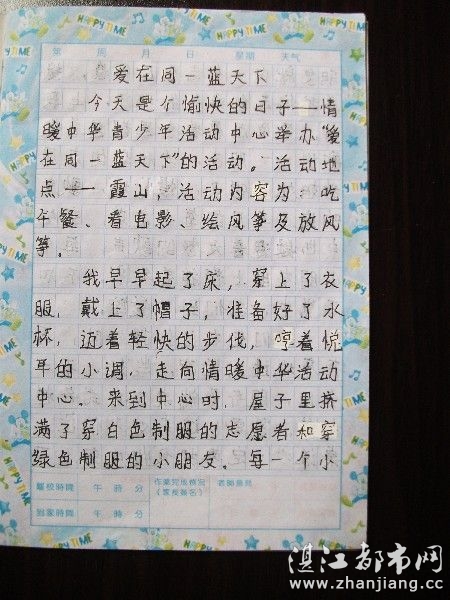 HAPPY TIME
第 周 月 日 星期 天气
爱在同一蓝天下
今天是个愉快的日子——情
暖中华青少年活动中心举办“爱
在同一蓝天下”的活动。活动地
点——霞山，活动内容为：吃
午餐、看电影、绘风筝及放风
筝。
我早早起了床，穿上了衣
服，戴上了帽子，准备好了水
杯，迈着轻快的步伐，哼着悦
耳的小调，走向情暖中华活动
中心。来到中心时，屋子里挤
满了穿白色制服的志愿者和穿
绿色制服的小朋友。每一个小
離校時間 午 時 分
作業完成情況
（家長簽名）
老師意見
到家時間 午 時 分
湛江都市网
www.zhanjiang.cc